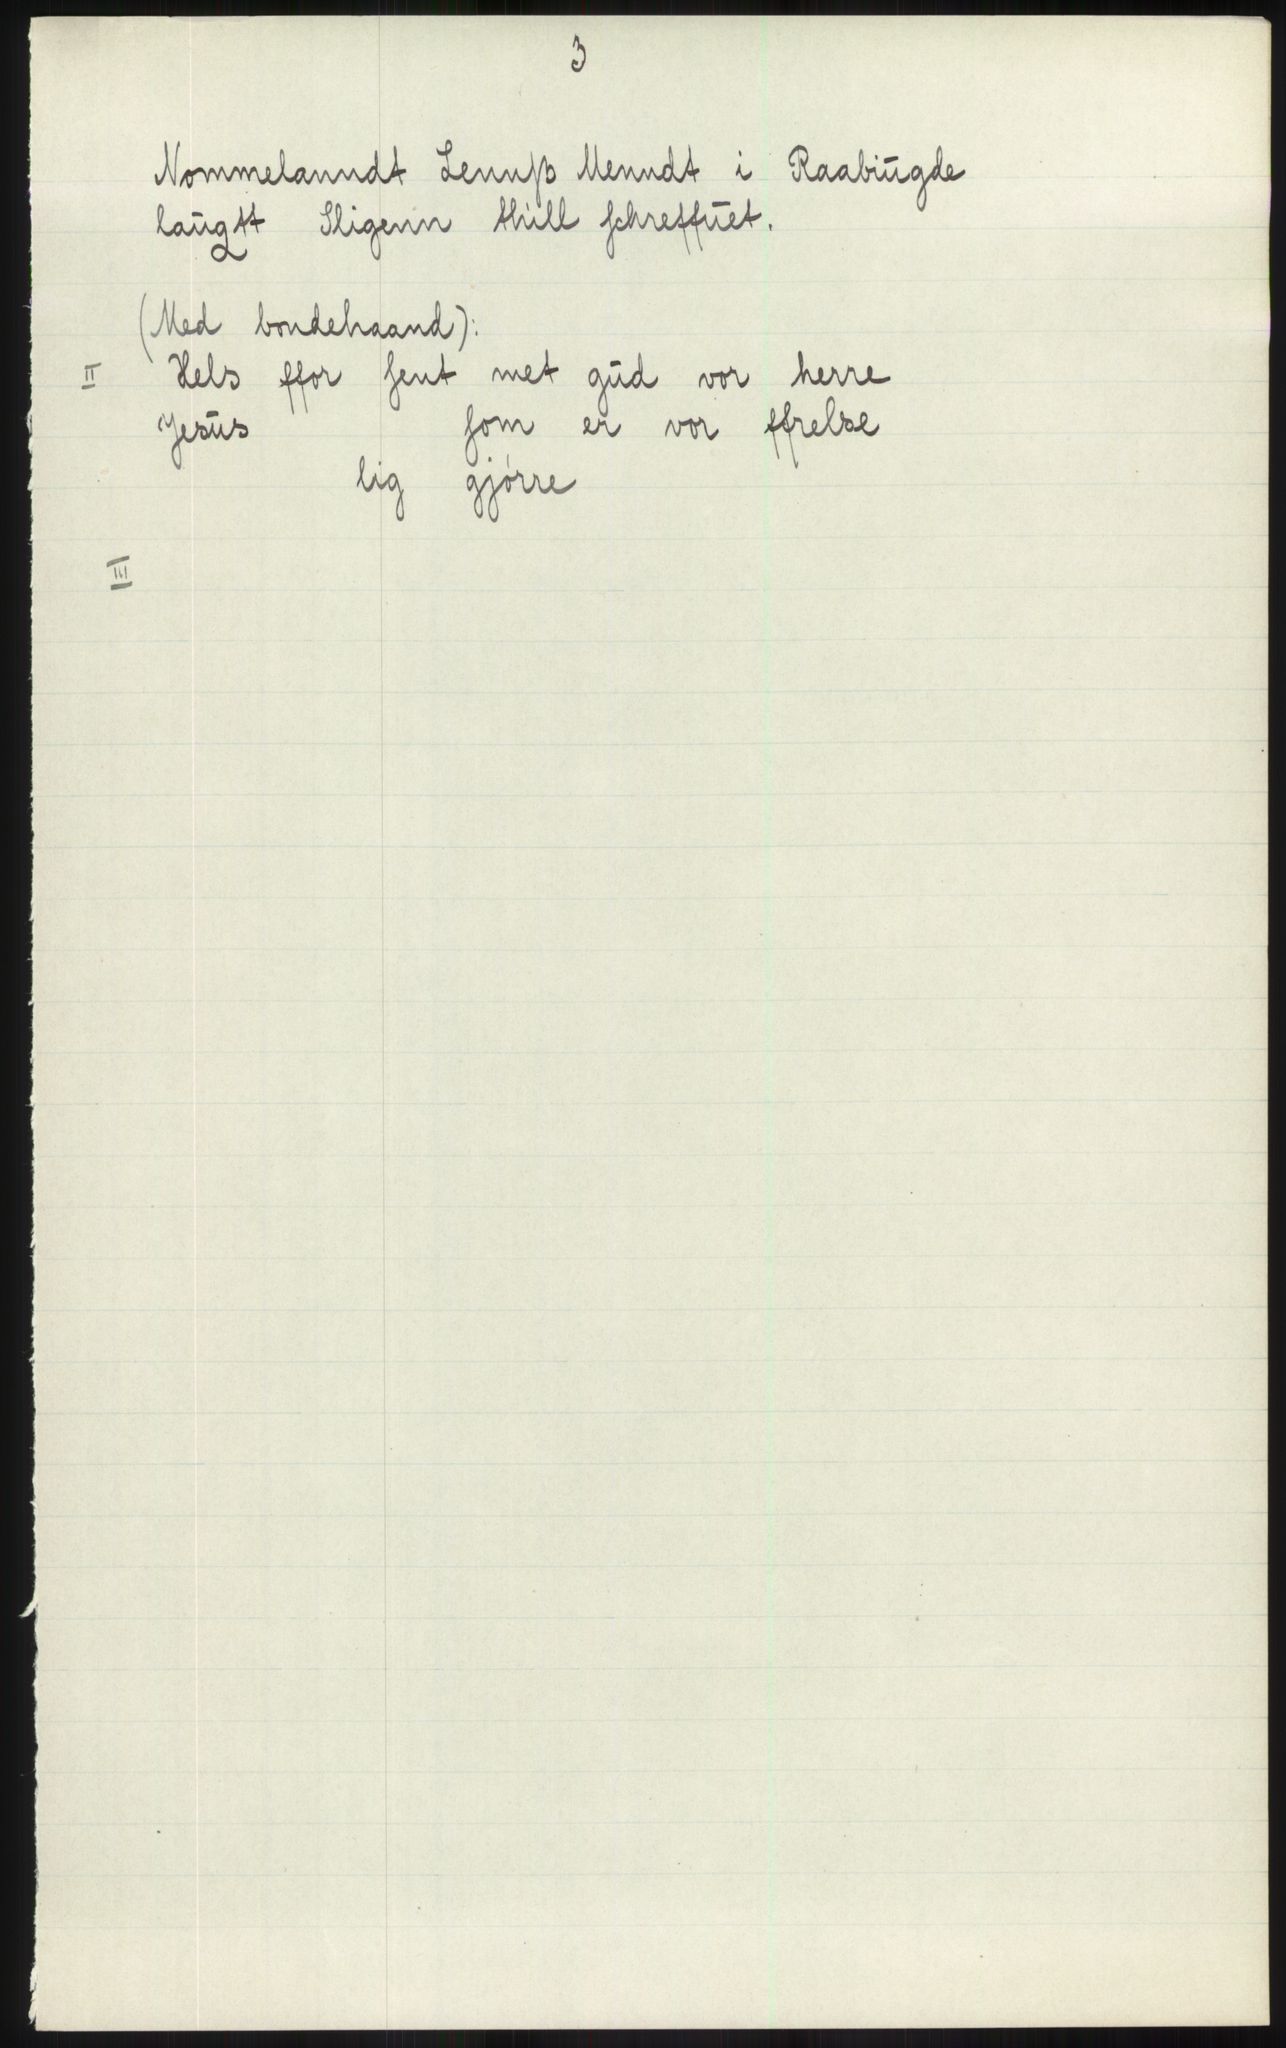 3
Nommelanndt Lennsz Menndt i Raabiugde
laugtt Sligenn thill schreffuet.
(Med bondehaand):
II Hels ffor sent met gud vor herre
Jesus som er vor ffrelse
lig gjørre
III